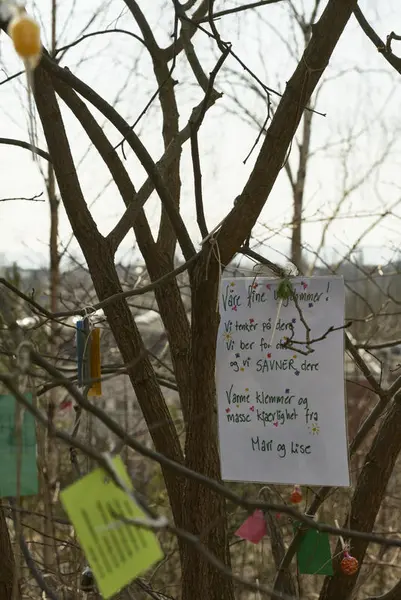 Våre fine ungdommer!
Vi tenker på dere
Vi ber for dere
og vi SAVNER dere
Varme klemmer og
masse kjærlighet fra
Mari og Lise